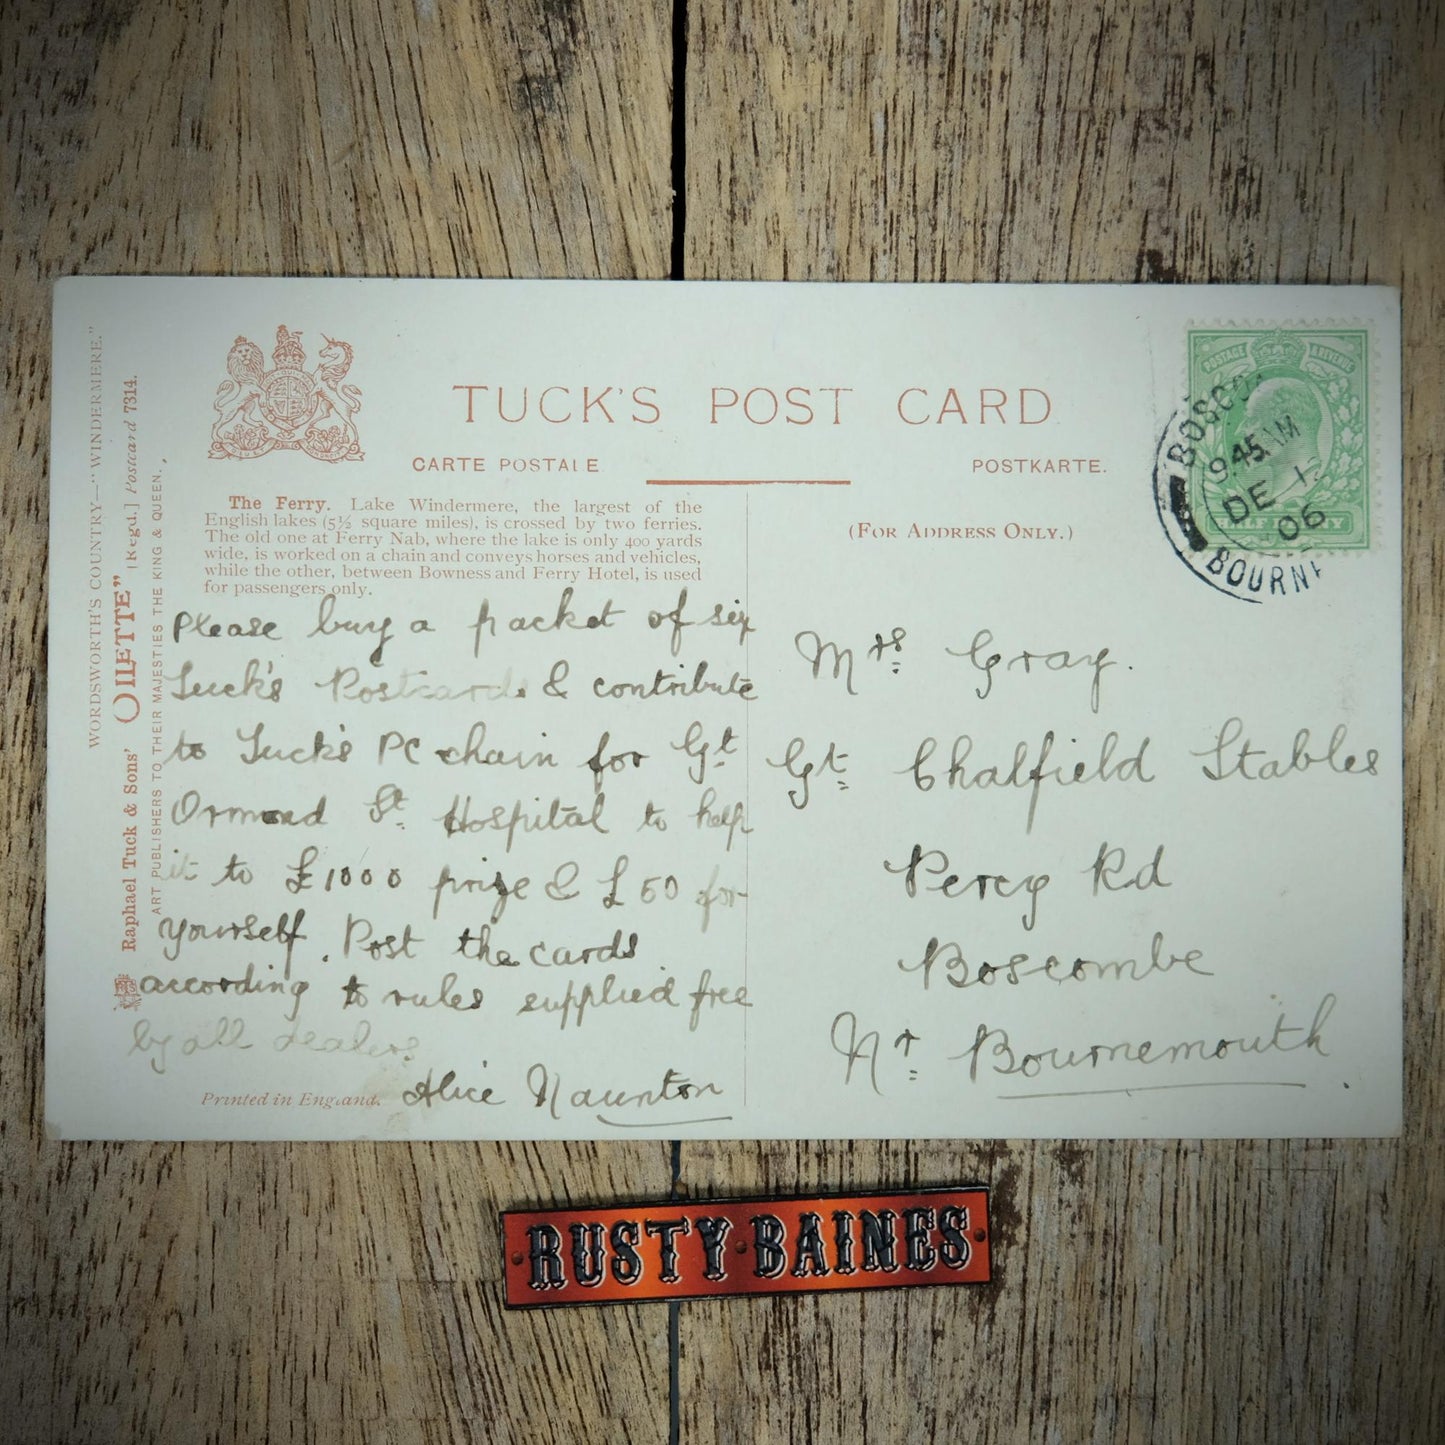 WORDSWORTH'S COUNTRY—"WINDERMERE."
Raphael Tuck & Sons' "OILETTE" [Regd.] Postcard 7314.
ART PUBLISHERS TO THEIR MAJESTIES THE KING & QUEEN.
TUCK'S POST CARD
CARTE POSTALE
POSTKARTE.
The Ferry. Lake Windermere, the largest of the
English lakes (5½ square miles), is crossed by two ferries.
The old one at Ferry Nab, where the lake is only 400 yards
wide, is worked on a chain and conveys horses and vehicles,
while the other, between Bowness and Ferry Hotel, is used
for passengers only.
(FOR ADDRESS ONLY.)
Please buy a packet of six
Tuck's Postcards & contribute
to Tuck's PC chain for Gt
Ormond St. Hospital to help
it to £1000 prize & £50 for
yourself. Post the cards
according to rules supplied free
by all dealers
Alice Naunton
Printed in England.
Mrs Gray.
Gt Chalfield Stables
Percy Rd
Boscombe
Nr Bournemouth.
POSTAGE & REVENUE
HALF PENNY
BOSCO
945 AM
DE 1
06
BOURN
RUSTY BAINES